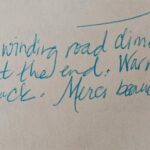 winding road dim
t the end. War
ack. Merci beau